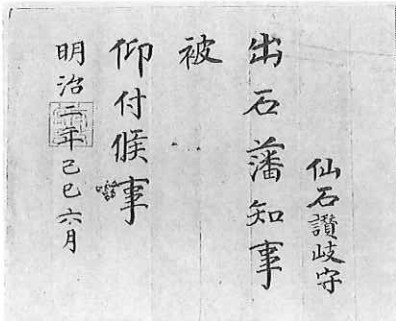 仙石讃岐守
出石藩知事
被
仰付候事
明治二年己巳六月